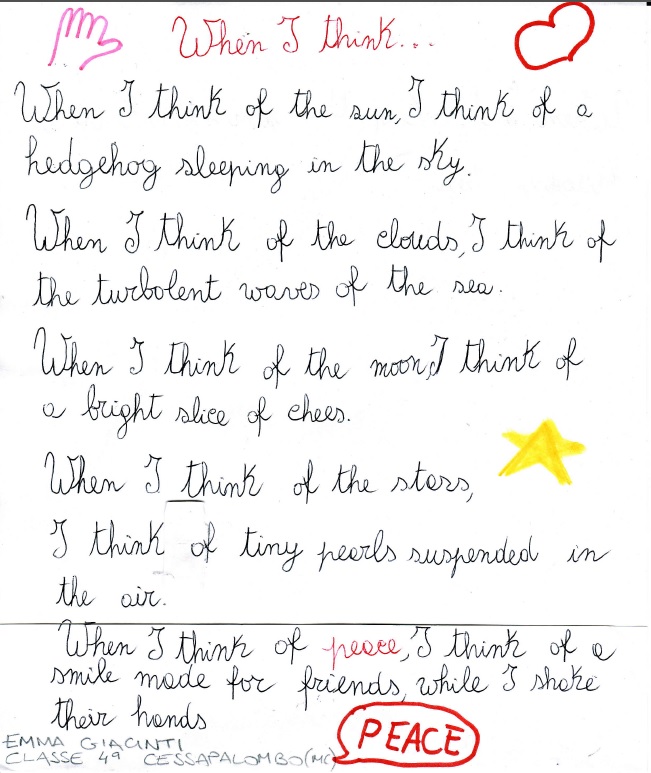 When I think...
When I think of the sun, I think of a
hedgehog sleeping in the sky.
When I think of the clouds, I think of
the turbolent waves of the sea.
When I think of the moon, I think of
a bright slice of chees.
When I think of the stars,
I think of tiny pearls suspended in
the air.
When I think of peace, I think of a
smile made for friends, while I shake
their hands
PEACE
EMMA GIACINTI
CLASSE 4ª CESSAPALOMBO (MC)